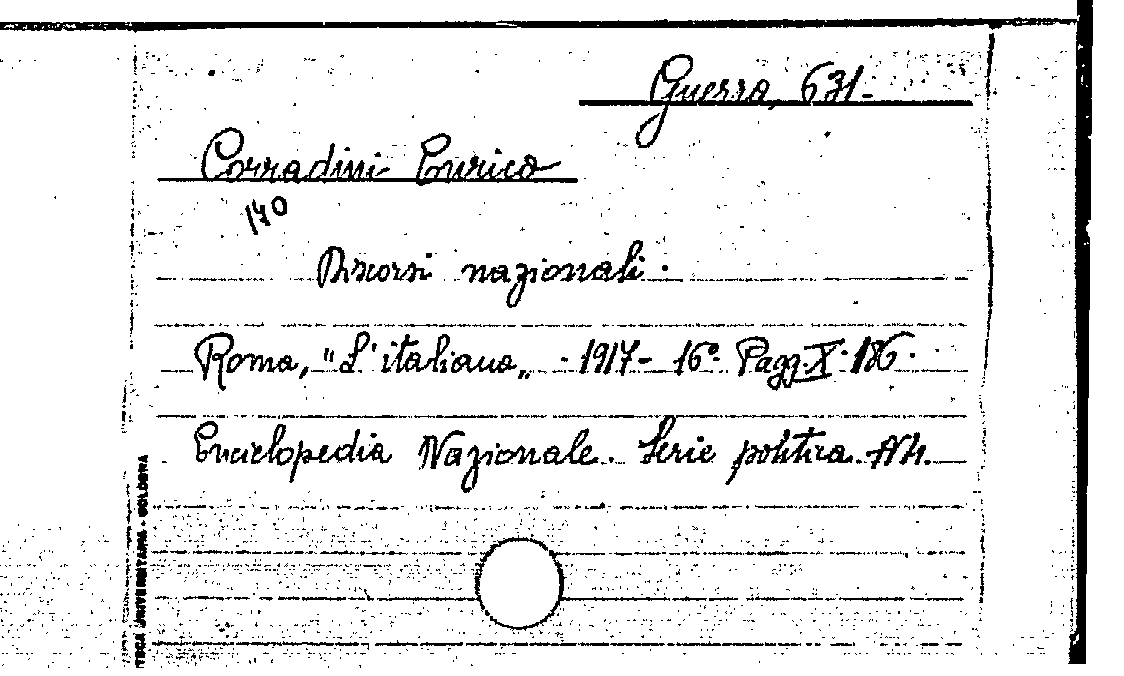 Guerra, 631-
Corradini Enrico
140
Discorsi nazionali.
Roma, "L'italiana„ - 1917 - 16°. Pagg. X. 186.
Enciclopedia Nazionale. Serie politica.
TECA UNIVERSITARIA - BOLOGNA